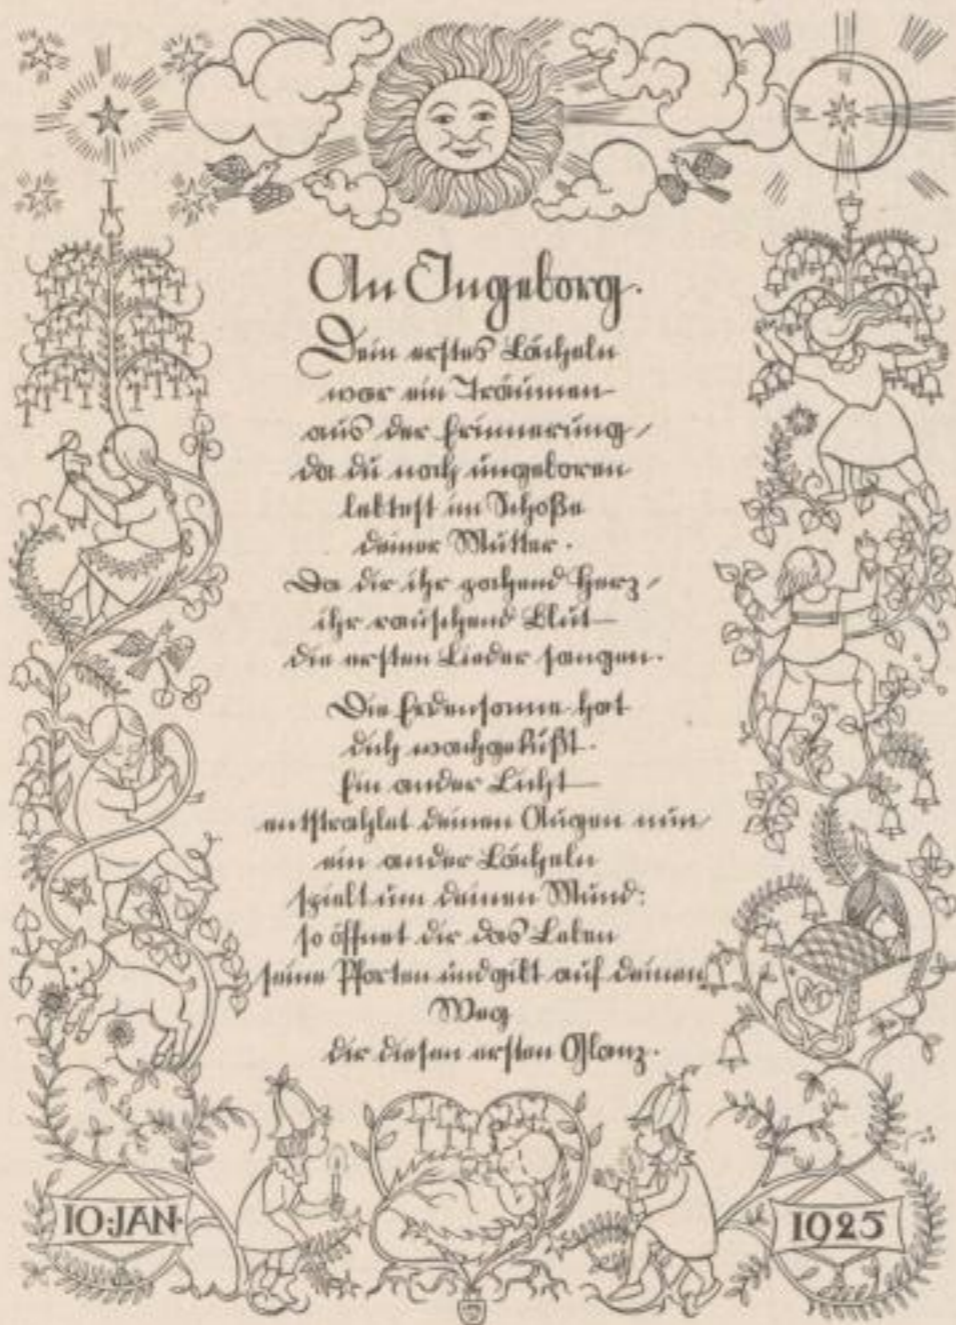 An Ingeborg.
Dein erstes Lächeln
war ein Träumen
aus der Erinnerung/
da du noch ungeboren
lebtest im Schoße
deiner Mutter.
Da dir ihr pochend Herz/
ihr rauschend Blut
die ersten Lieder sangen.
Die Erdensonne hat
dich wachgeküßt.
Ein ander Licht
entstrahlet deinen Augen nun/
ein ander Lächeln
spielt um deinen Mund:
so öffnet dir das Leben
seine Pforten und gibt auf deinen
Weg
dir diesen ersten Glanz.
10:JAN.
1925